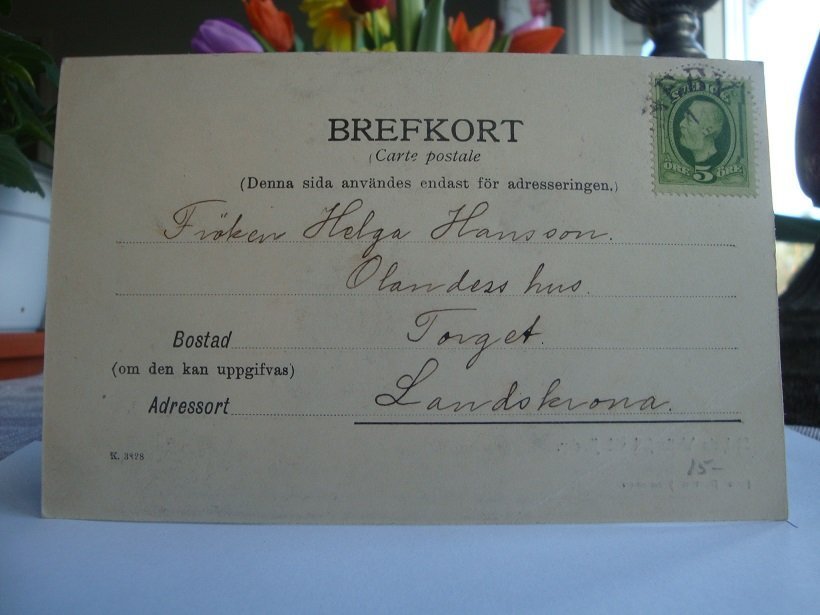 BREFKORT
(Carte postale
(Denna sida användes endast för adresseringen.)
Fröken Helga Hansson.
Olandess hus.
Bostad Torget.
(om den kan uppgifvas)
Adressort Landskrona.
K. 3828
15-
ÖRE 5 ÖRE